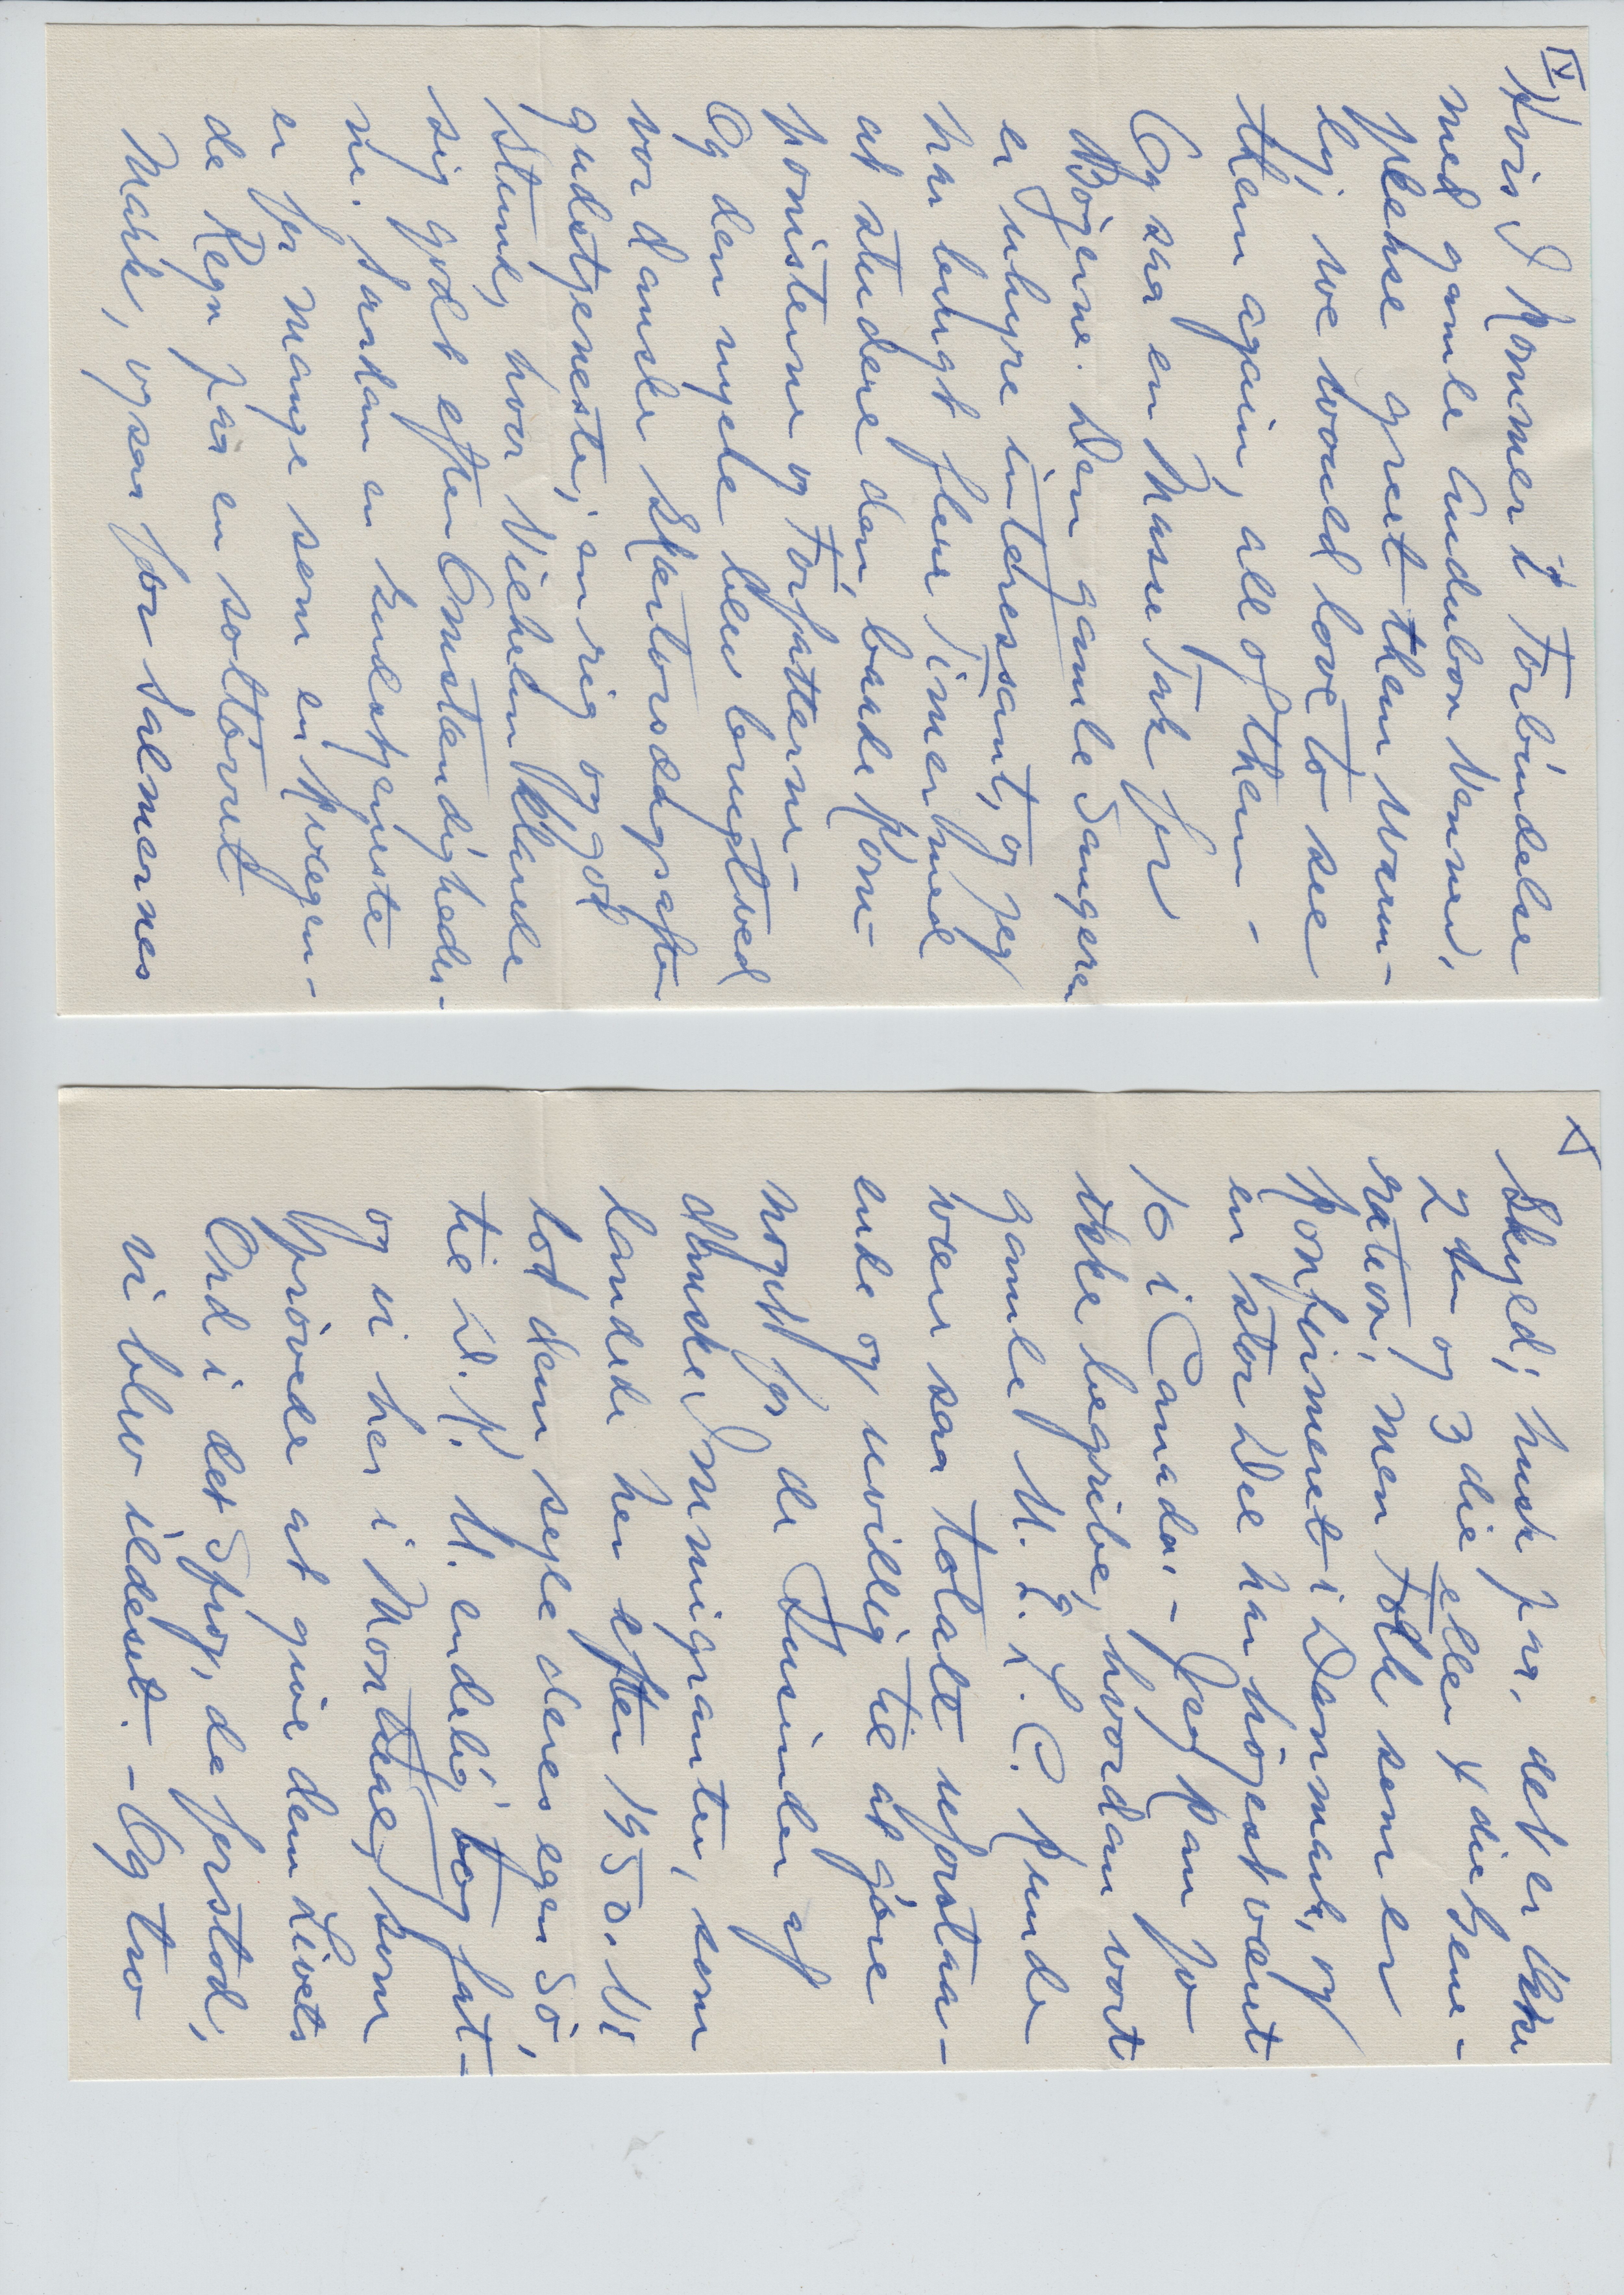 IV)
Hvis I kommer i Forbindelse
med gamle Audubon Venner,
please greet them warm-
ly, we would love to see
them again, all of them -
Og saa en Masse Tak for
Bøgerne. Den gamle Sangeren
er uhyre interessant, og jeg
har brugt flere Timer med
at studere den, baade Kom-
ponisterne og Forfatterne -
Og den nyele blev brugt ved
vor danske Skærtorsdagsaften
gudstjeneste, en rig og god
Stund, hvor Vilhelm klarede
sig godt efter Omstændigheder-
ne. Saadan en Gudstjeneste
er for mange som en kvægen-
de Regn paa en soltørret
Mark, ogsaa for Salmernes
V
Skyld, husk paa, det er ikke
2den og 3die eller 4die Gene-
ration, men Folk som er
konfirmeret i Danmark, og
en stor Del har højest været
10 i Canada. - Jeg kan jo
ikke begribe, hvordan vort
gamle U. E. L. C. kunde
være saa totalt uforstaa-
ende og uvillig til at gøre
noget for de Tusinder af
danske Immigranter, som
landede her efter 1950. Vi
lod dem sejle deres egen Sø,
til D. K. U. endelig tog fat -
og vi her i Montreal, som
prøvede at give dem Livets
Ord i det Sprog, de forstod,
vi blev ildeset. - Og tro